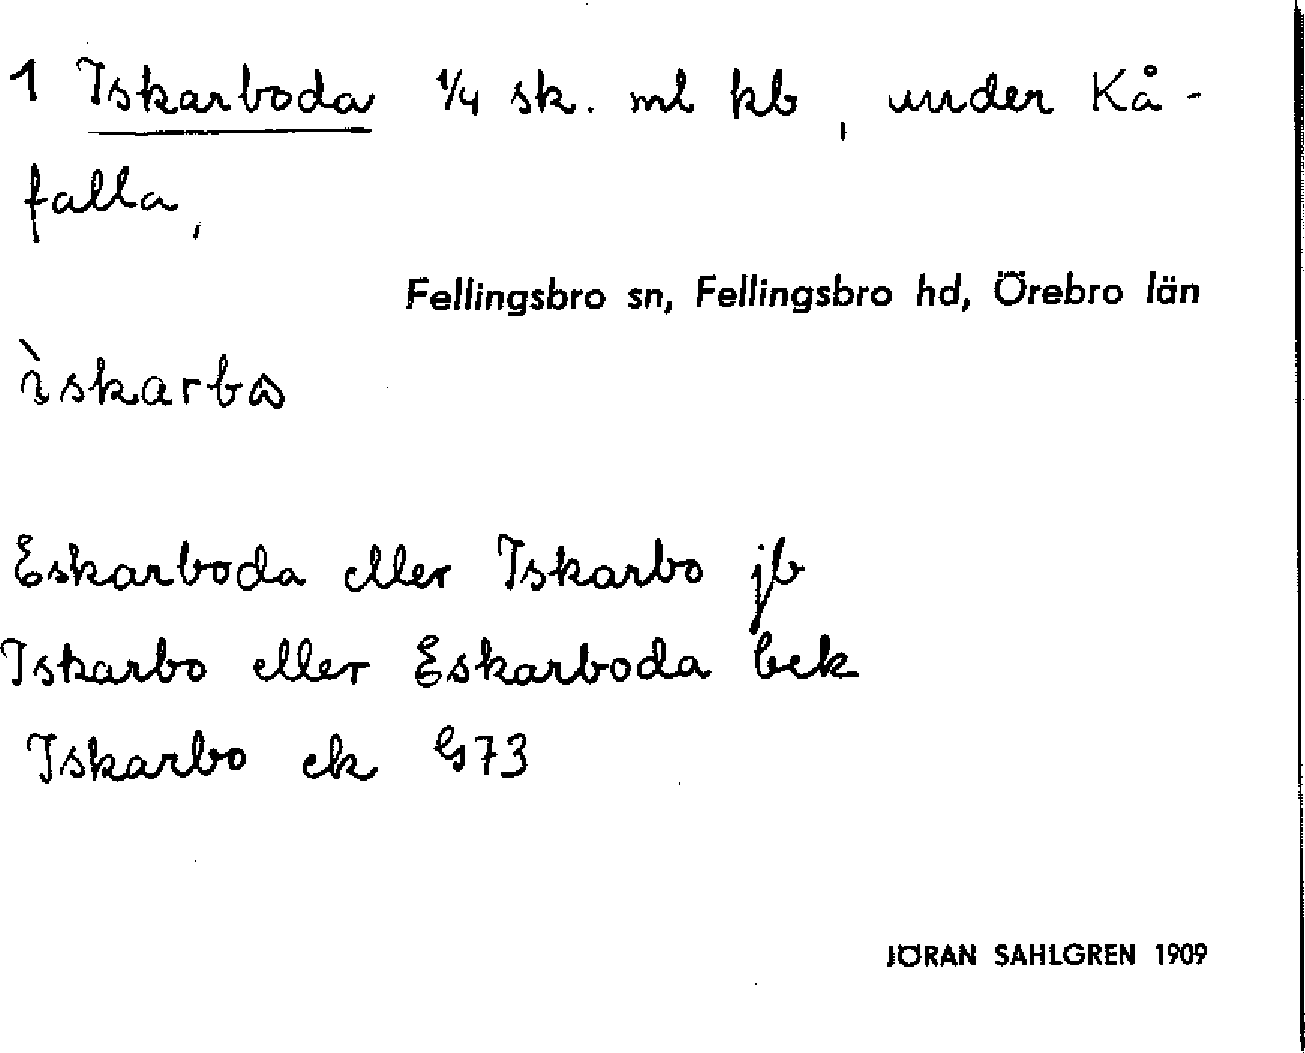 1 Iskarboda 1/4 sk. ml kb, under Kå-
falla,
Fellingsbro sn, Fellingsbro hd, Örebro län
ìskarbω
Eskarboda eller Iskarbo jb
Iskarbo eller Eskarboda bek
Iskarbo ek G73
JÖRAN SAHLGREN 1909